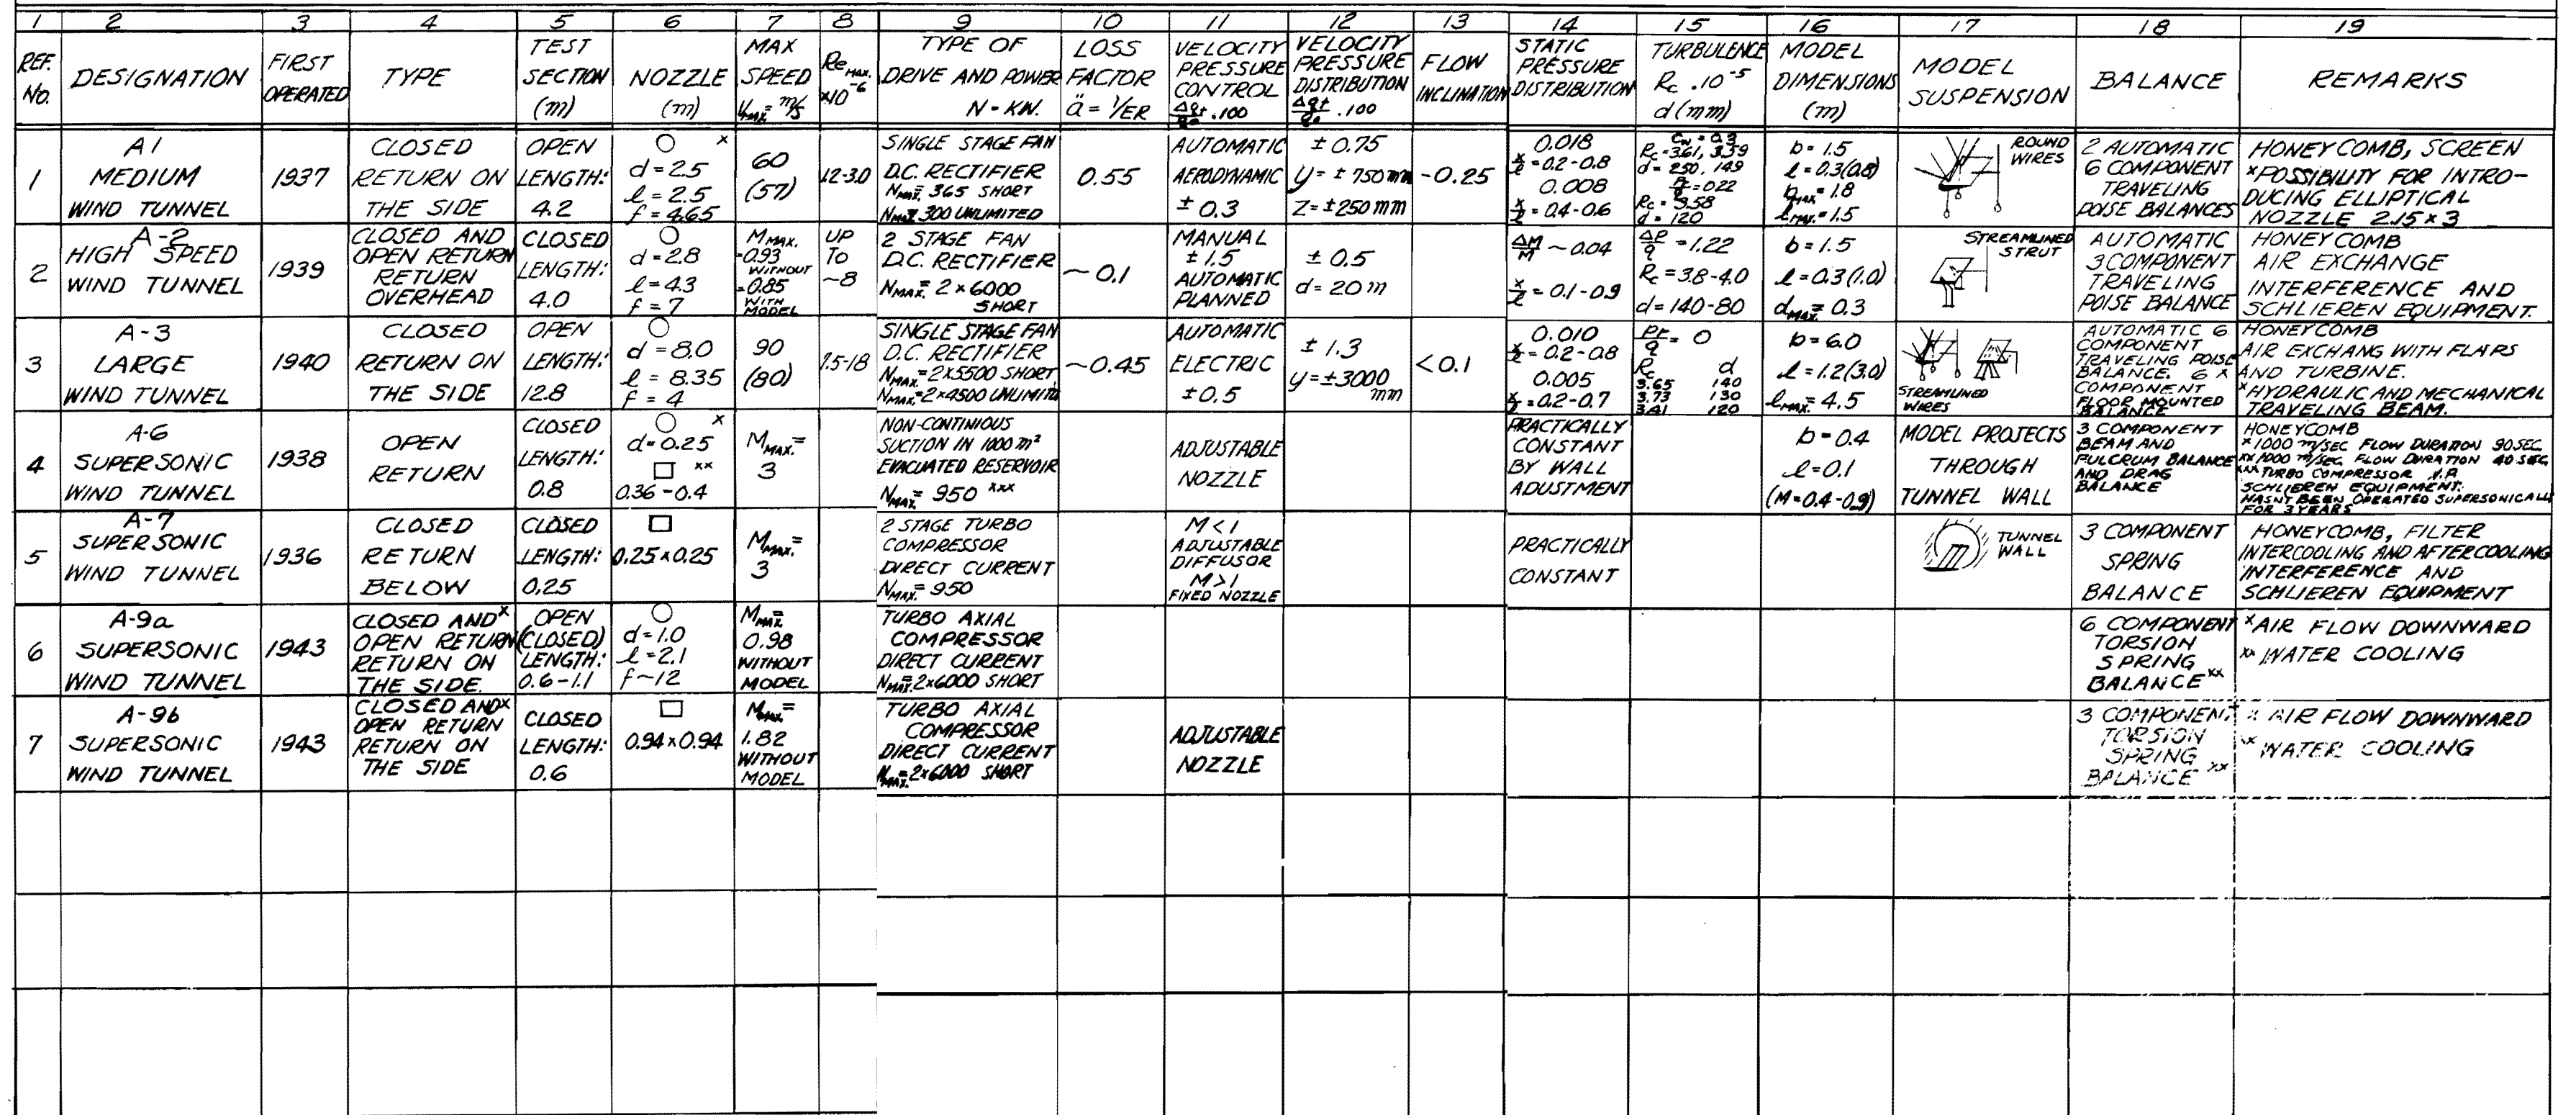 1 2 3 4 5 6 7 8 9 10 11 12 13 14 15 16 17 18 19
REF. No.
DESIGNATION
FIRST OPERATED
TYPE
TEST SECTION (m)
NOZZLE (m)
MAX SPEED Vmax = m/s
Re MAX. ×10⁻⁶
TYPE OF DRIVE AND POWER N = KW.
LOSS FACTOR ä = 1/ER
VELOCITY PRESSURE CONTROL .100
VELOCITY PRESSURE DISTRIBUTION .100
FLOW INCLINATION
STATIC PRESSURE DISTRIBUTION
TURBULENCE Rc .10⁻⁵ d (mm)
MODEL DIMENSIONS (m)
MODEL SUSPENSION
BALANCE
REMARKS
1
A1
MEDIUM
WIND TUNNEL
1937
CLOSED
RETURN ON
THE SIDE
OPEN
LENGTH:
4.2
○ x
d = 2.5
l = 2.5
f = 4.65
60
(57)
1.2-3.0
SINGLE STAGE FAN
D.C. RECTIFIER
NMAX = 365 SHORT
NMAX 300 UNLIMITED
0.55
AUTOMATIC
AERODYNAMIC
± 0.3
± 0.75
y = ± 750 mm
Z = ± 250 mm
-0.25
0.018
x/l = 0.2-0.8
0.008
x/l = 0.4-0.6
Cw = 0.3
Rc = 3.61, 3.39
d = 250, 149
= 0.22
Rc = 3.58
d = 120
b = 1.5
l = 0.3(0.8)
bMAX = 1.8
lMAX. = 1.5
ROUND
WIRES
2 AUTOMATIC
6 COMPONENT
TRAVELING
POISE BALANCES
HONEYCOMB, SCREEN
x POSSIBILITY FOR INTRO-
DUCING ELLIPTICAL
NOZZLE 2.15 x 3
2
A-2
HIGH SPEED
WIND TUNNEL
1939
CLOSED AND
OPEN RETURN
RETURN
OVERHEAD
CLOSED
LENGTH:
4.0
○
d = 2.8
l = 4.3
f = 7
MMAX.
=0.93
WITHOUT
=0.85
WITH
MODEL
UP
TO
~8
2 STAGE FAN
D.C. RECTIFIER
NMAX. = 2 x 6000
SHORT
~0.1
MANUAL
± 1.5
AUTOMATIC
PLANNED
± 0.5
d = 20 m
ΔM/M ~ 0.04
x/l = 0.1-0.9
ΔP/q = 1.22
Rc = 3.8-4.0
d = 140-80
b = 1.5
l = 0.3(1.0)
dMAX = 0.3
STREAMLINED
STRUT
AUTOMATIC
3 COMPONENT
TRAVELING
POISE BALANCE
HONEYCOMB
AIR EXCHANGE
INTERFERENCE AND
SCHLIEREN EQUIPMENT.
3
A-3
LARGE
WIND TUNNEL
1940
CLOSED
RETURN ON
THE SIDE
OPEN
LENGTH:
12.8
○
d = 8.0
l = 8.35
f = 4
90
(80)
7.5-18
SINGLE STAGE FAN
D.C. RECTIFIER
NMAX. = 2x5500 SHORT
NMAX. = 2x4500 UNLIMITED
~0.45
AUTOMATIC
ELECTRIC
± 0.5
± 1.3
y = ±3000
mm
<0.1
0.010
x/l = 0.2-0.8
0.005
x/l = 0.2-0.7
= 0
Rc d
3.65 140
3.73 130
3.41 120
b = 6.0
l = 1.2(3.0)
lMAX. = 4.5
STREAMLINED
WIRES
AUTOMATIC 6
COMPONENT
TRAVELING POISE
BALANCE. 6 x
COMPONENT
FLOOR MOUNTED
BALANCE
HONEYCOMB
AIR EXCHANG WITH FLAPS
AND TURBINE.
x HYDRAULIC AND MECHANICAL
TRAVELING BEAM.
4
A-6
SUPERSONIC
WIND TUNNEL
1938
OPEN
RETURN
CLOSED
LENGTH:
0.8
○ x
d = 0.25
□ xx
0.36-0.4
MMAX. =
3
NON-CONTINIOUS
SUCTION IN 1000 m²
EVACUATED RESERVOIR
NMAX. = 950 xxx
ADJUSTABLE
NOZZLE
PRACTICALLY
CONSTANT
BY WALL
ADUSTMENT
b = 0.4
l = 0.1
(M = 0.4-0.9)
MODEL PROJECTS
THROUGH
TUNNEL WALL
3 COMPONENT
BEAM AND
FULCRUM BALANCE
AND DRAG
BALANCE
HONEYCOMB
x 1000 m/SEC FLOW DURATION 90 SEC.
xx 1000 m/SEC. FLOW DURATION 40 SEC.
xxx TURBO COMPRESSOR
SCHLIEREN EQUIPMENT.
HASN'T BEEN OPERATED SUPERSONICALLY
FOR 3 YEARS
5
A-7
SUPERSONIC
WIND TUNNEL
1936
CLOSED
RETURN
BELOW
CLOSED
LENGTH:
0.25
□
0.25 x 0.25
MMAX. =
3
2 STAGE TURBO
COMPRESSOR
DIRECT CURRENT
NMAX. = 950
M < 1
ADJUSTABLE
DIFFUSOR
M > 1
FIXED NOZZLE
PRACTICALLY
CONSTANT
TUNNEL
WALL
3 COMPONENT
SPRING
BALANCE
HONEYCOMB, FILTER
INTERCOOLING AND AFTERCOOLING
INTERFERENCE AND
SCHLIEREN EQUIPMENT
6
A-9a
SUPERSONIC
WIND TUNNEL
1943
CLOSED AND x
OPEN RETURN
RETURN ON
THE SIDE.
OPEN
(CLOSED)
LENGTH:
0.6-1.1
○
d = 1.0
l = 2.1
f ~ 12
MMAX =
0.98
WITHOUT
MODEL
TURBO AXIAL
COMPRESSOR
DIRECT CURRENT
NMAX. 2x6000 SHORT
6 COMPONENT
TORSION
SPRING
BALANCE xx
x AIR FLOW DOWNWARD
xx WATER COOLING
7
A-9b
SUPERSONIC
WIND TUNNEL
1943
CLOSED AND x
OPEN RETURN
RETURN ON
THE SIDE
CLOSED
LENGTH:
0.6
□
0.94 x 0.94
MMAX =
1.82
WITHOUT
MODEL
TURBO AXIAL
COMPRESSOR
DIRECT CURRENT
NMAX. = 2x6000 SHORT
ADJUSTABLE
NOZZLE
3 COMPONENT
TORSION
SPRING
BALANCE xx
x AIR FLOW DOWNWARD
xx WATER COOLING